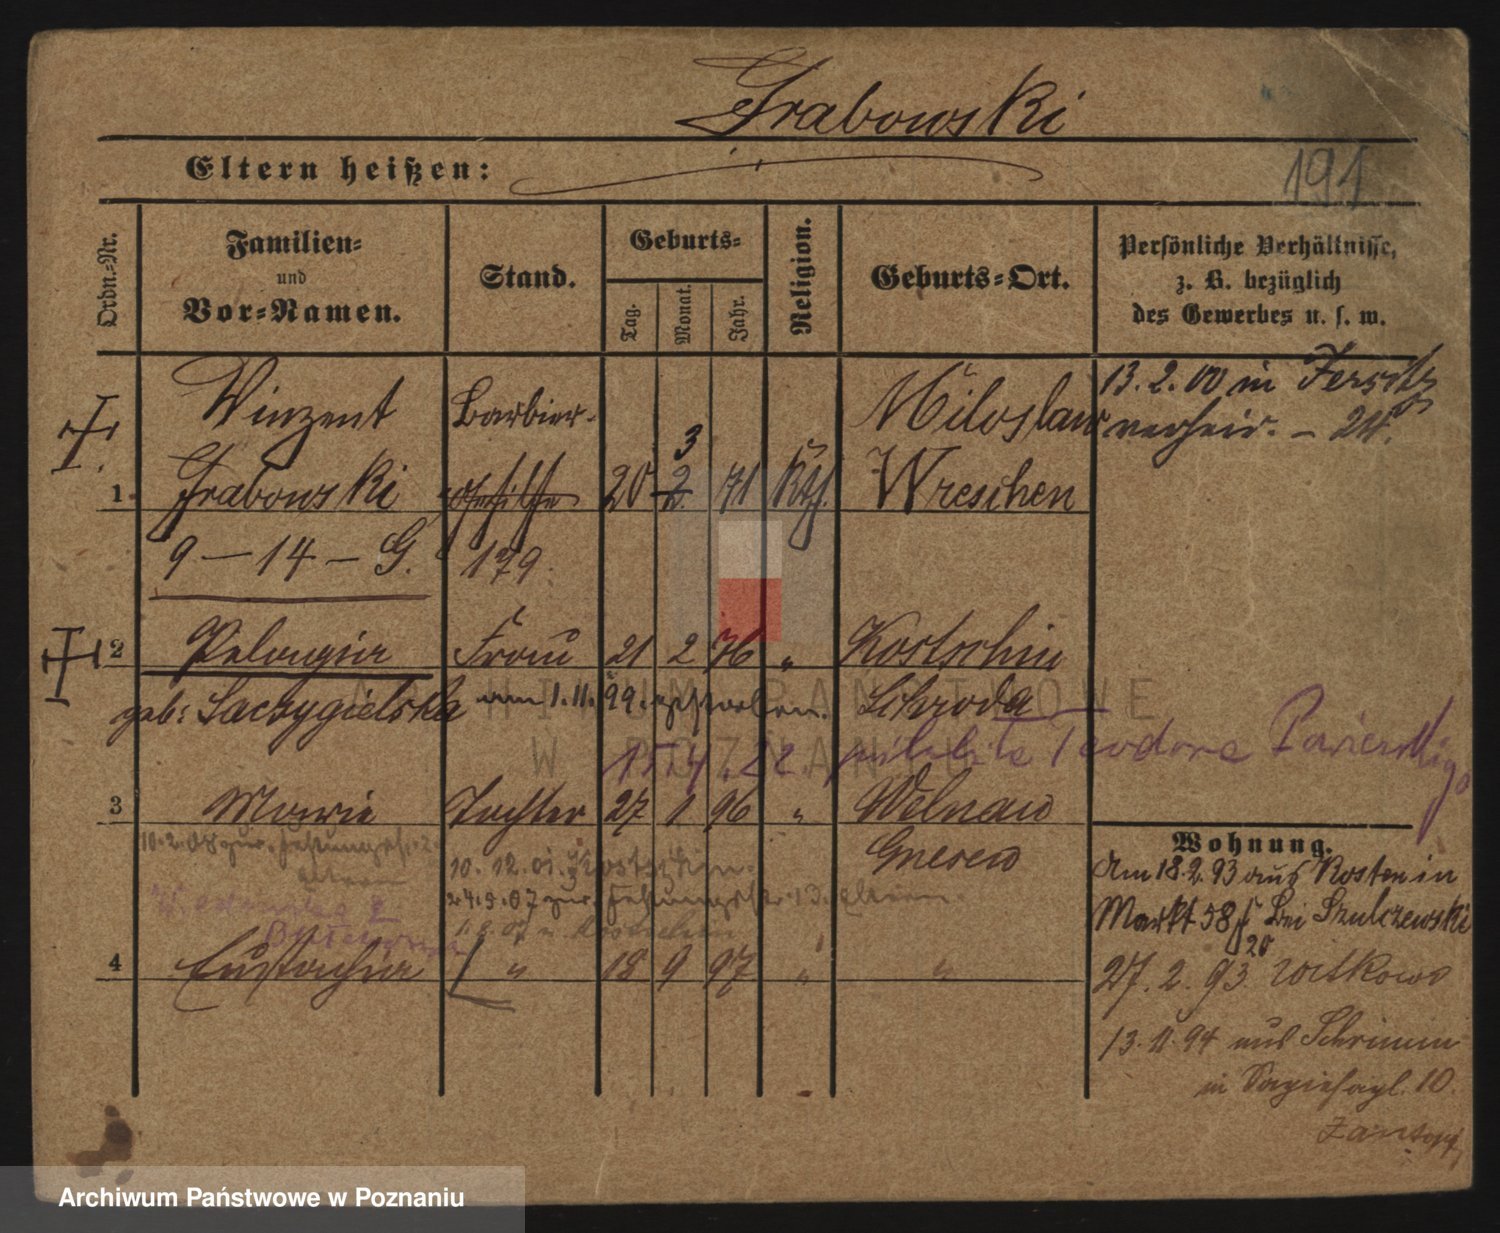 Grabowski
Eltern heißen:
191
Ordn.-Nr.
Familien-
und
Vor-Namen.
Stand.
Geburts-
Tag.
Monat.
Jahr.
Religion.
Geburts-Ort.
Persönliche Verhältnisse,
z. B. bezüglich
des Gewerbes u. s. w.
Winzent Barbier- Miloslaw 13. 2. 00 in Jersitz
3 verheir. – 24.
1 Grabowski gehilfe 20 2. 71 Kth. Wreschen
9 – 14 – G. 179.
2 Pelagia Frau 21 2 76 " Kostschin
geb: Saczygielska am 1. 11. 99. gestorben. Schroda
15.4.22. Teodora
3 Marie Tochter 27 1 96 " Welnau
Gnesen
10.2.08 zur
10. 12. 01. Kostschin.
24.9.07 zur 13.
4 Eustachia " 18 9 97 " "
Wohnung.
Am 18.2.93 aus Kosten in
Markt 58 bei Szulczewski
20
27. 2. 93. Witkowo
13. 11. 94 aus Schrimm
in 10.
ARCHIWUM PAŃSTWOWE
W POZNANIU
Archiwum Państwowe w Poznaniu